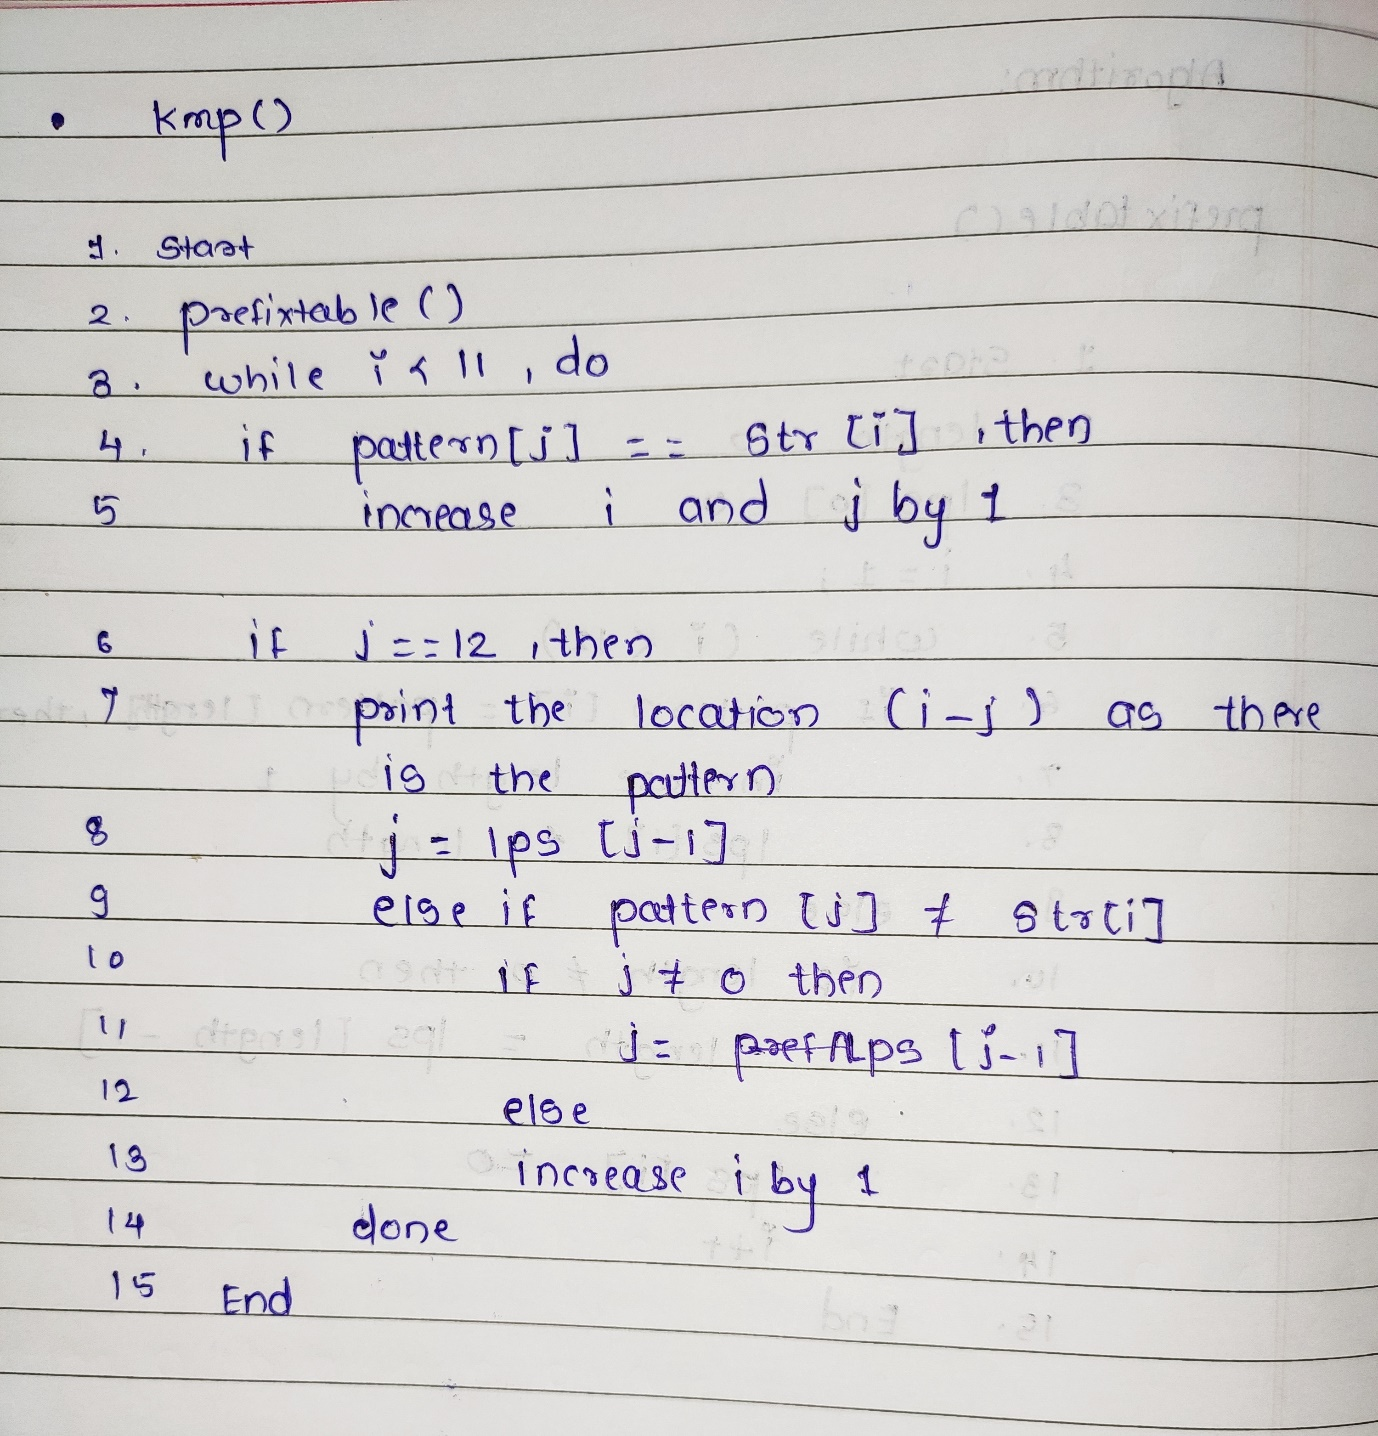 • kmp()
1. Start
2. prefixtable ()
3. while i < l1, do
4. if pattern[j] == str [i], then
5 increase i and j by 1
6 if j == l2, then
7 print the location (i-j) as there
is the pattern
8 j = lps [j-1]
9 else if pattern [j] ≠ str[i]
10 if j ≠ 0 then
11 j = lps [j-1]
12 else
13 increase i by 1
14 done
15 End